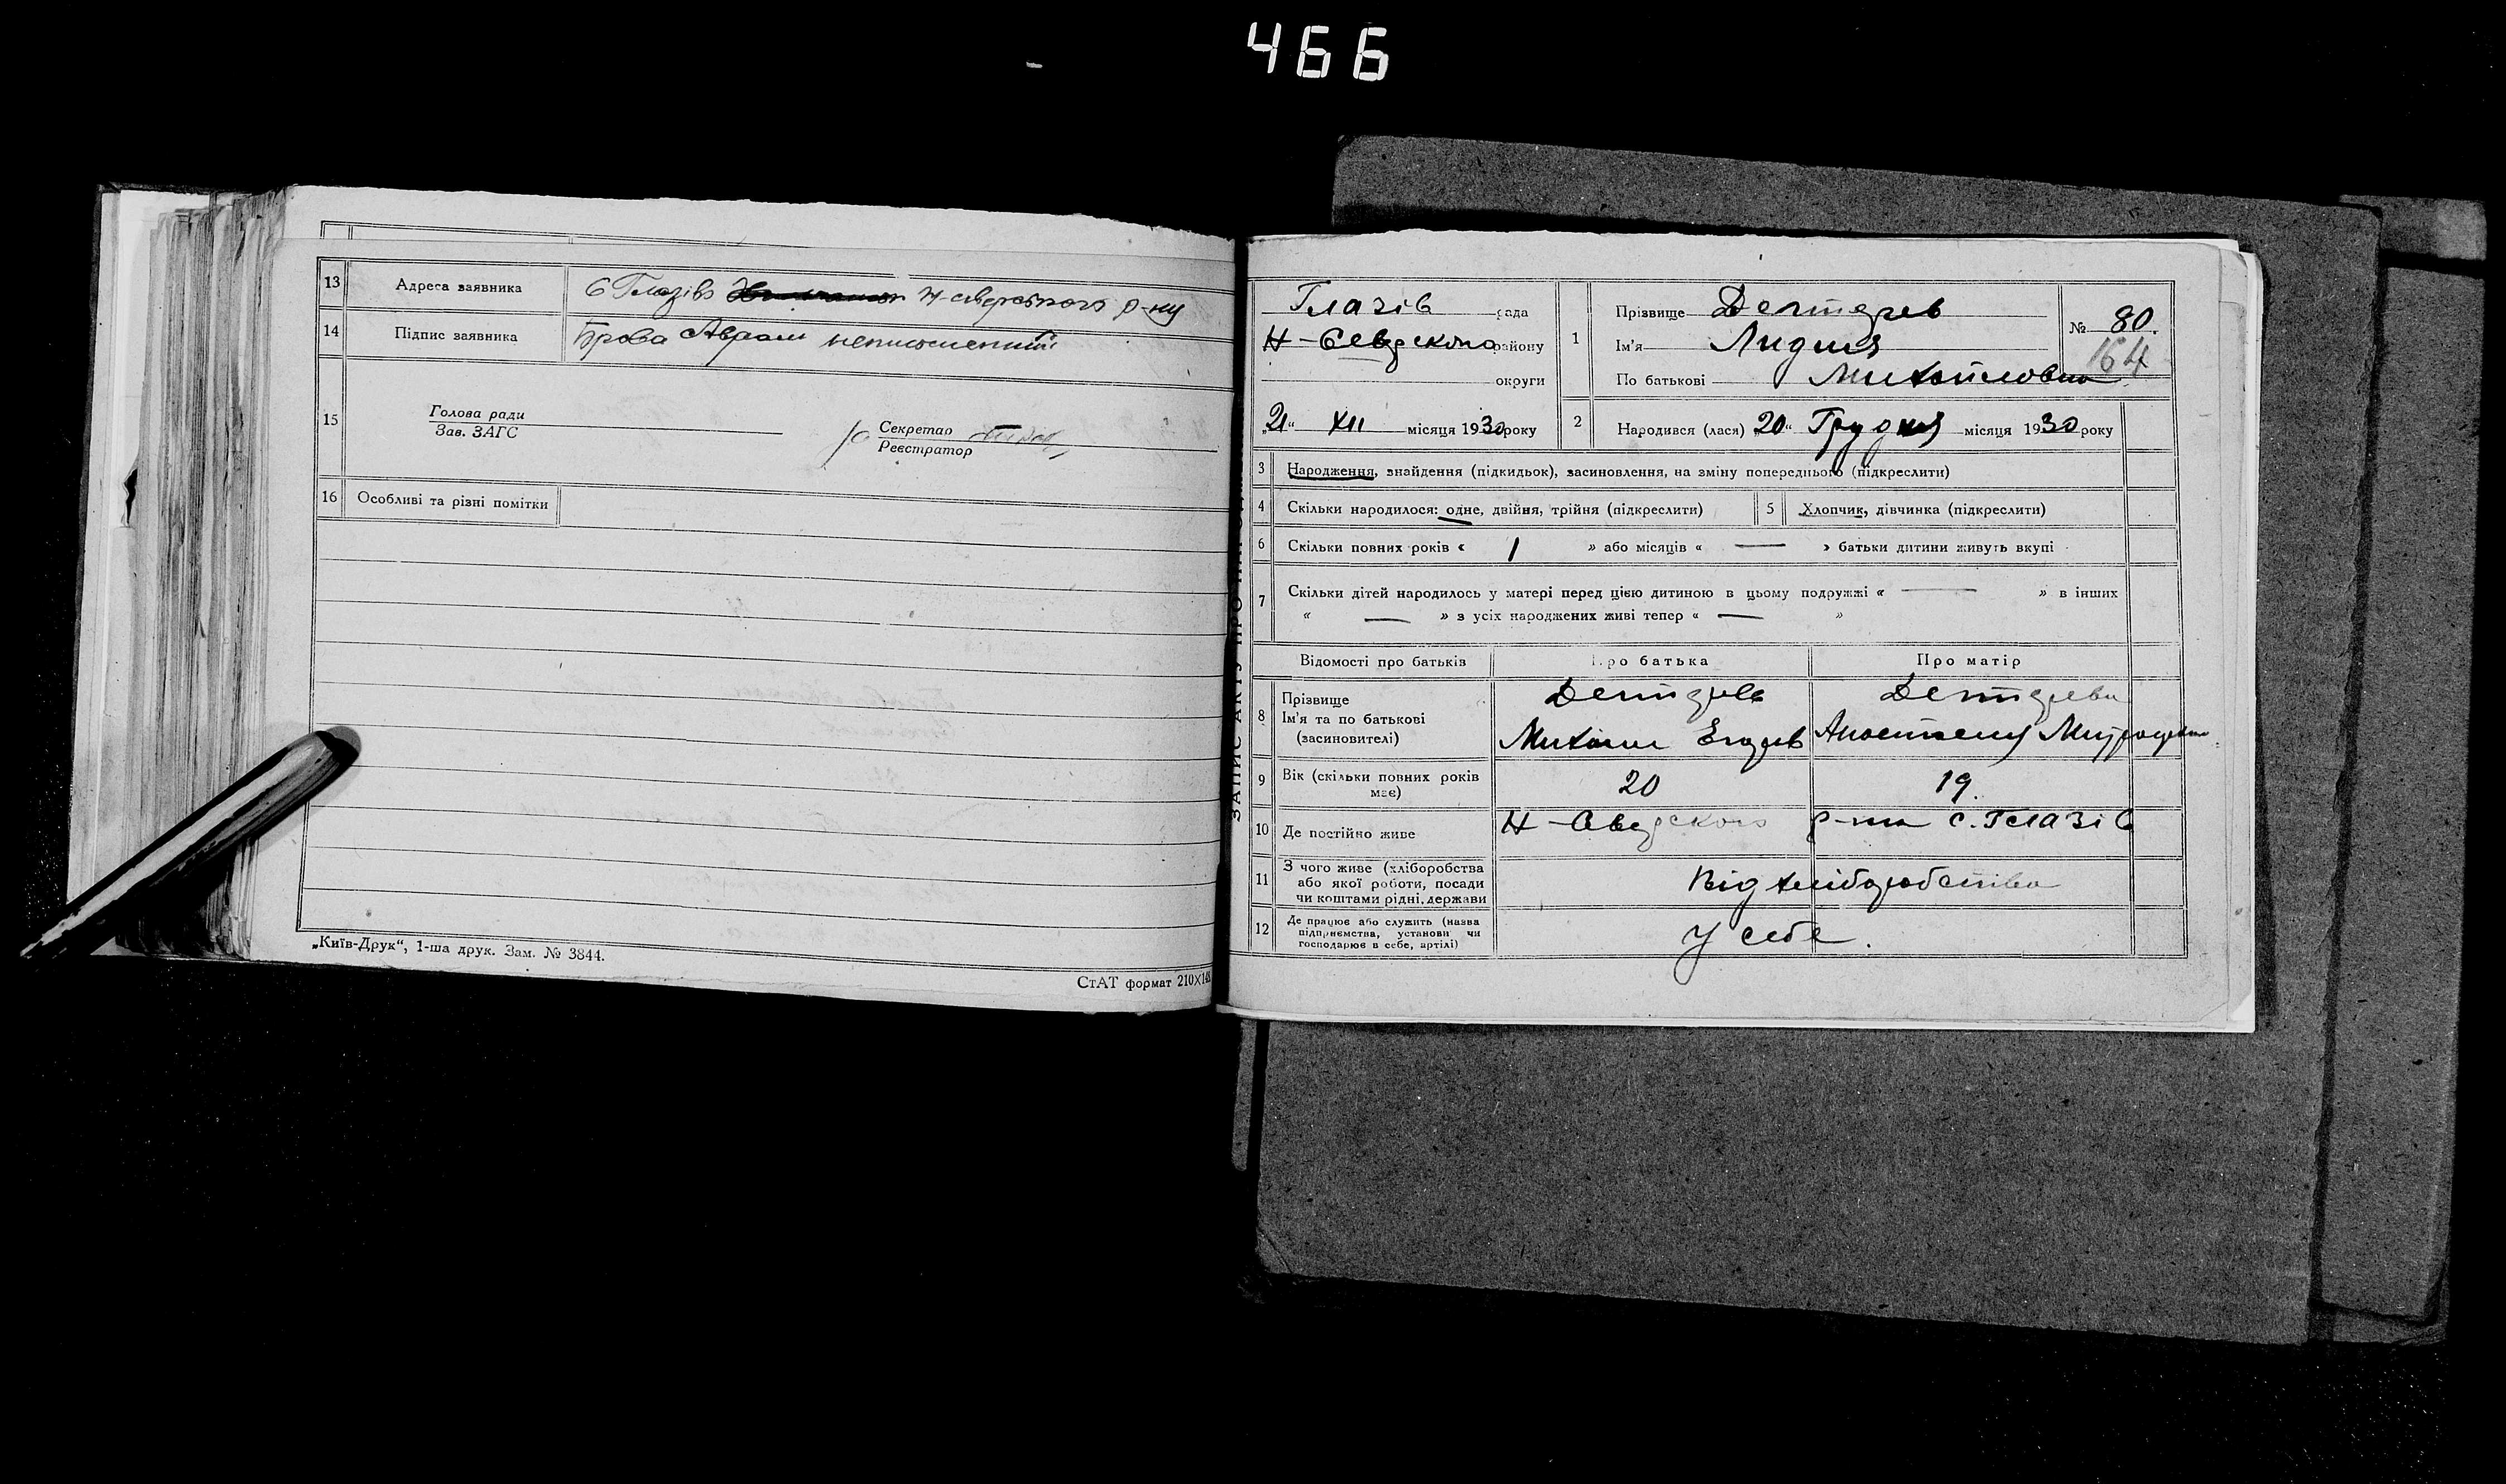 466
13 Адреса заявника С Глазів Н-сіверського р-ну
14 Підпис заявника Брова Авраам неписьменний
15 Голова ради
Зав. ЗАГС
Секретар
Реєстратор
16 Особливі та різні помітки
„Київ-Друк“, 1-ша друк. Зам. № 3844.
СтАТ формат 210×148
Глазів рада
Н-Сіверского району
округи
„21“ XII місяця 1930 року
1 Прізвище
Ім'я Лидия
По батькові Михайловна
№ 80.
164
2 Народився (лася) „20“ Грудня місяця 1930 року
3 Народження, знайдення (підкидьок), засиновлення, на зміну попереднього (підкреслити)
4 Скільки народилося: одне, двійня, трійня (підкреслити) 5 Хлопчик, дівчинка (підкреслити)
6 Скільки повних років « 1 » або місяців « — » батьки дитини живуть вкупі
7 Скільки дітей народилось у матері перед цією дитиною в цьому подружжі « — » в інших
« — » з усіх народжених живі тепер « — »
Відомості про батьків Про батька Про матір
8 Прізвище
Ім'я та по батькові
(засиновителі)
Михаил
9 Вік (скільки повних років має) 20 19.
10 Де постійно живе р-на с. Глазів
11 З чого живе (хліборобства
або якої роботи, посади
чи коштами рідні, держави
Від хліборобства
12 Де працює або служить (назва
підприємства, установи чи
господарює в себе, артілі)
У себе.